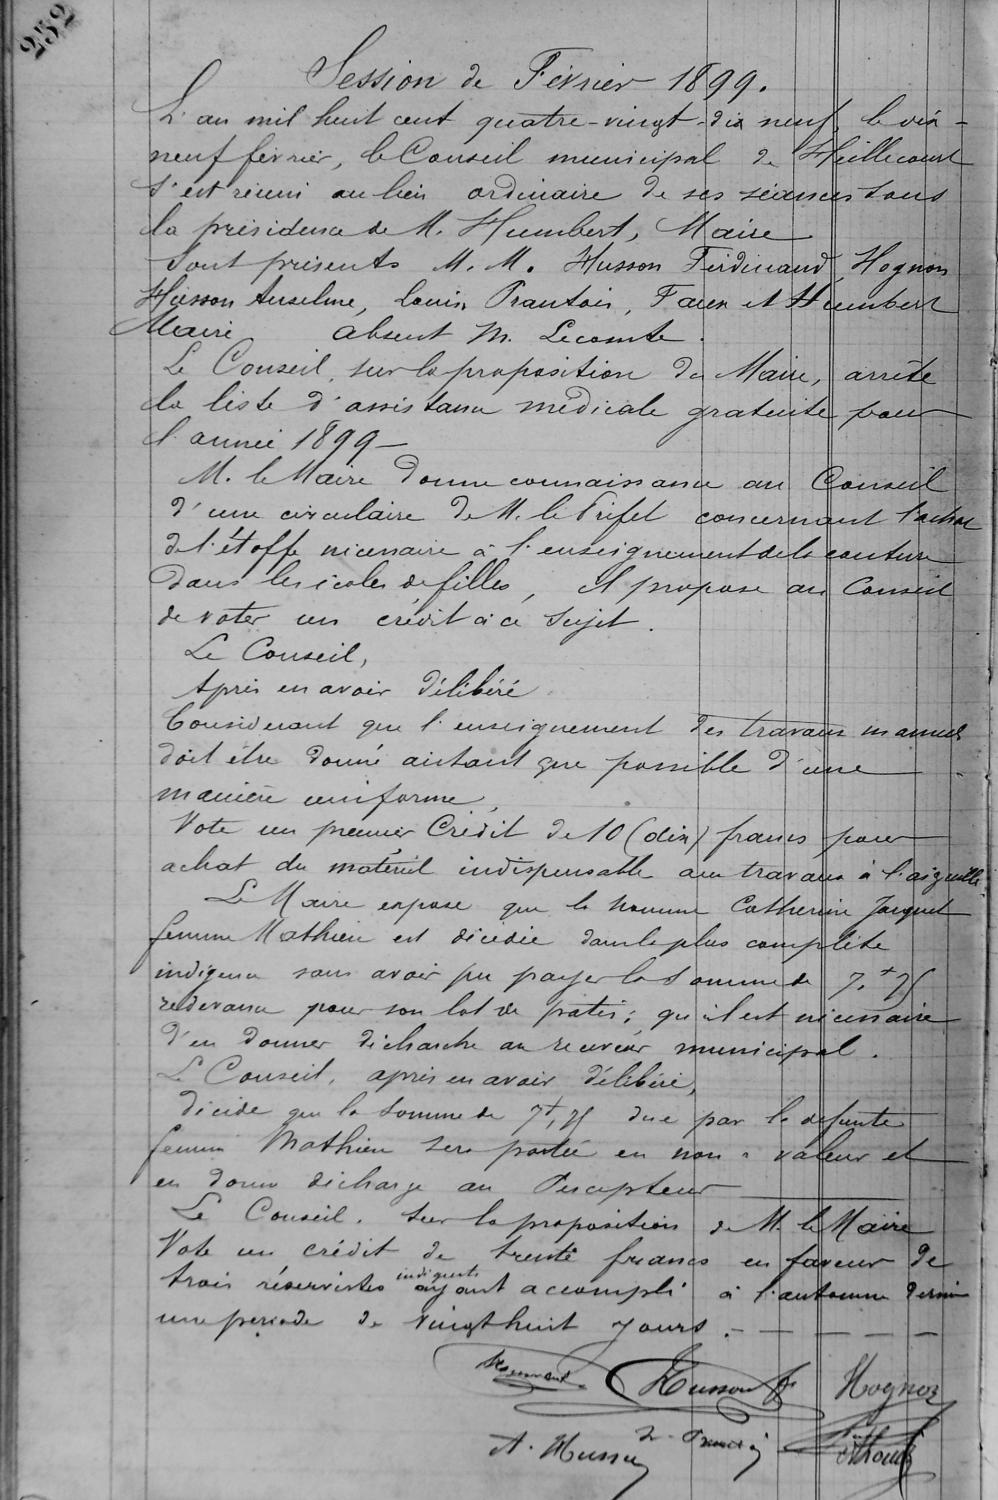 252
Session de Février 1899.
L'an mil huit cent quatre-vingt-dix neuf, le dix-
neuf février, le Conseil municipal de Hellecourt
s'est réuni au lieu ordinaire de ses séances sous
la présidence de M. Humbert, Maire
Sont présents M. M. Husson Ferdinand, Hognon
Husson Anselme, Louis, Prautois, et Humbert
Maire absent M. Lecomte.
Le Conseil, sur la proposition du Maire, arrête
la liste d'assistance médicale gratuite pour
l'année 1899 —
M. le Maire donne connaissance au Conseil
d'une circulaire de M. le Préfet concernant l'achat
de l'étoffe nécessaire à l'enseignement de la couture
dans les écoles de filles, il propose au Conseil
de voter un crédit à ce sujet.
Le Conseil,
Après en avoir délibéré
Considérant que l'enseignement des travaux manuels
doit être donné autant que possible d'une
manière uniforme,
Vote un premier Crédit de 10 (dix) francs pour
achat du matériel indispensable aux travaux à l'aiguille.
Le Maire expose que la nommée Catherine Jacquot
femme Mathieu est décédée dans la plus complète
indigence sans avoir pu payer la somme de 7f,75
redevance pour son lot de pâtis; qu'il est nécessaire
d'en donner décharche au receveur municipal.
Le Conseil, après en avoir délibéré,
décide que la somme de 7f,75 due par la défunte
femme Mathieu sera portée en non-valeur et
en donne décharge au Percepteur
Le Conseil, sur la proposition de M. le Maire
Vote un crédit de trente francs en faveur de
trois réservistes indigents ayant accompli à l'automne dernier
une période de vingt huit jours. - — — — —
Humbert Husson F Hognon
A. Husson L. Prautois